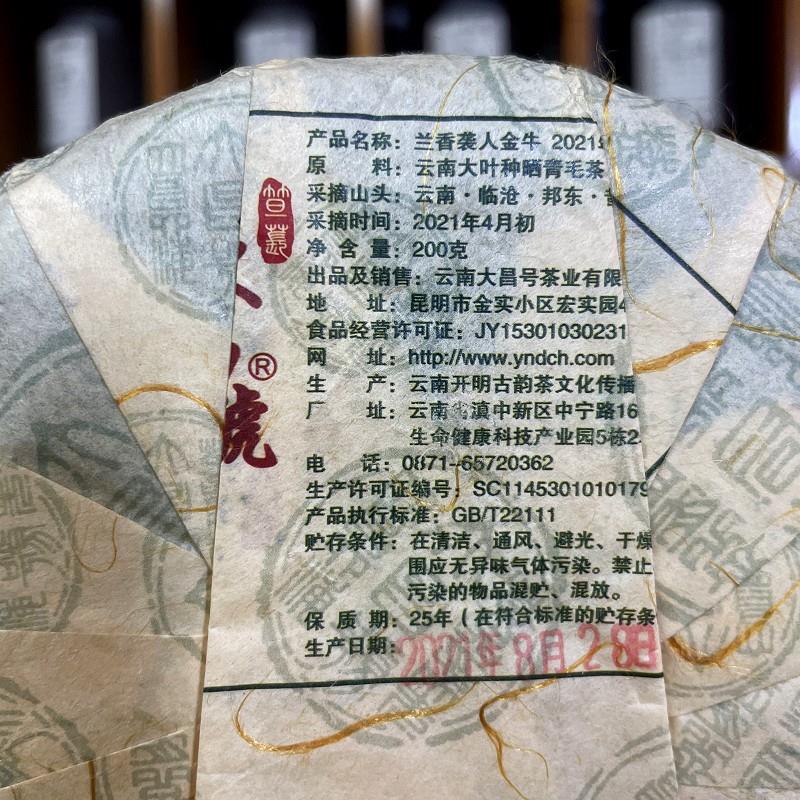 产品名称：兰香袭人金牛 2021
原 料：云南大叶种晒青毛茶
采摘山头：云南·临沧·邦东·
采摘时间：2021年4月初
净 含 量：200克
出品及销售：云南大昌号茶业有限
地 址：昆明市金实小区宏实园4
食品经营许可证：JY15301030231
网 址：http://www.yndch.com
生 产：云南开明古韵茶文化传播
厂 址：云南 滇中新区中宁路16
生命健康科技产业园5栋2
电 话：0871-65720362
生产许可证编号：SC1145301010179
产品执行标准：GB/T22111
贮存条件：在清洁、通风、避光、干燥
围应无异味气体污染。禁止
污染的物品混贮、混放。
保 质 期：25年（在符合标准的贮存条
生产日期：2021年8月28日
號®